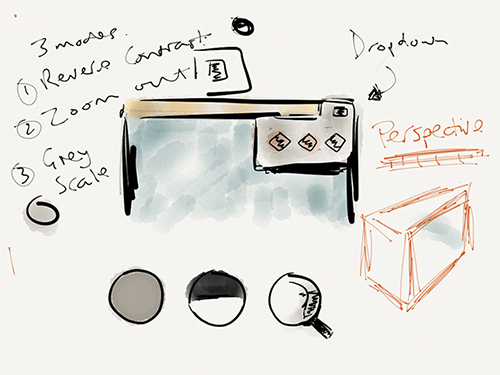 3 modes.
① Reverse Contrast.
② Zoom out
③ Grey
Scale
Dropdown
Perspective